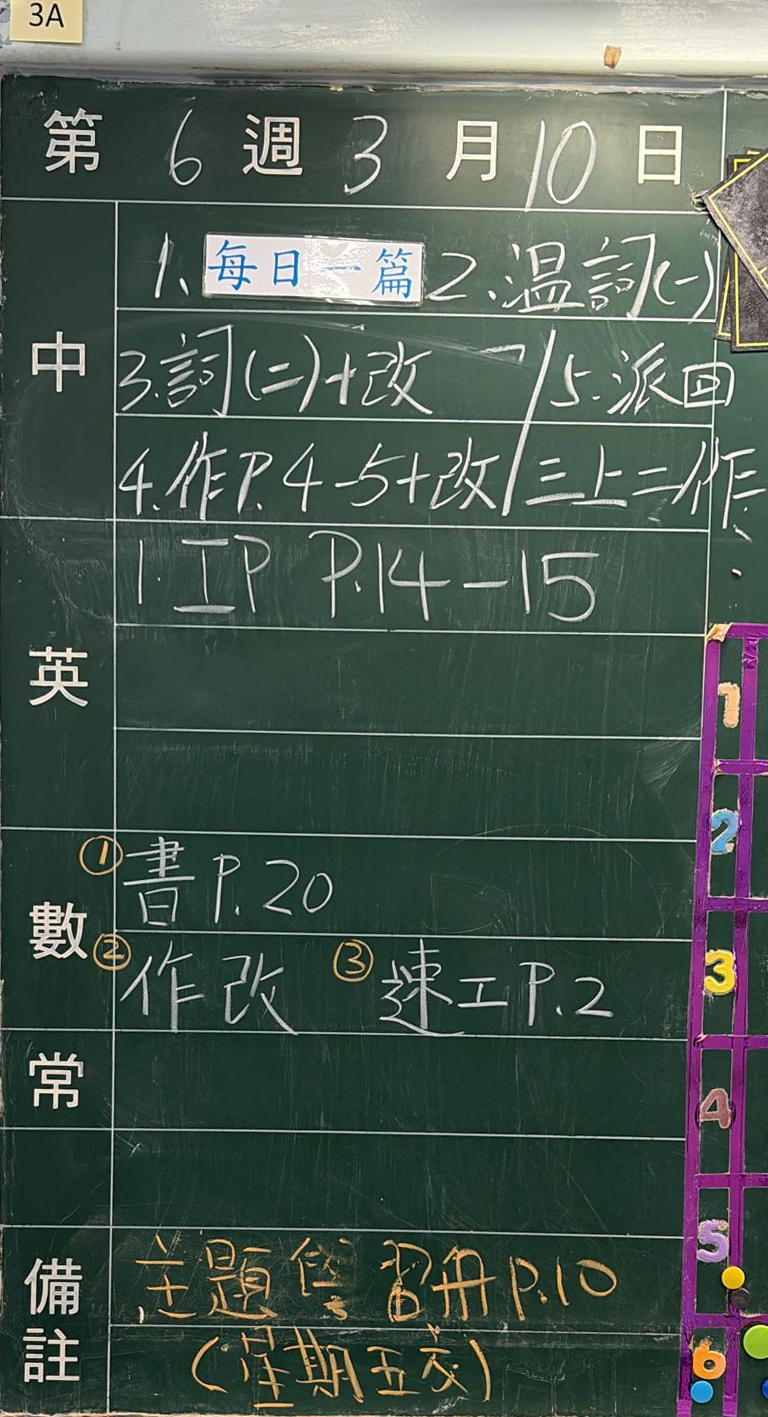 3A
第 6 週 3 月 10 日
中
1. 每日一篇 2. 温詞(一)
3. 詞(二)+改
5. 派回
4. 作P.4-5+改
三上二作
英
1. IP P.14-15
數
① 書P.20
② 作改 ③ 速工P.2
常
備註
主題學習冊P.10
(星期五交)
1
2
3
4
5
6